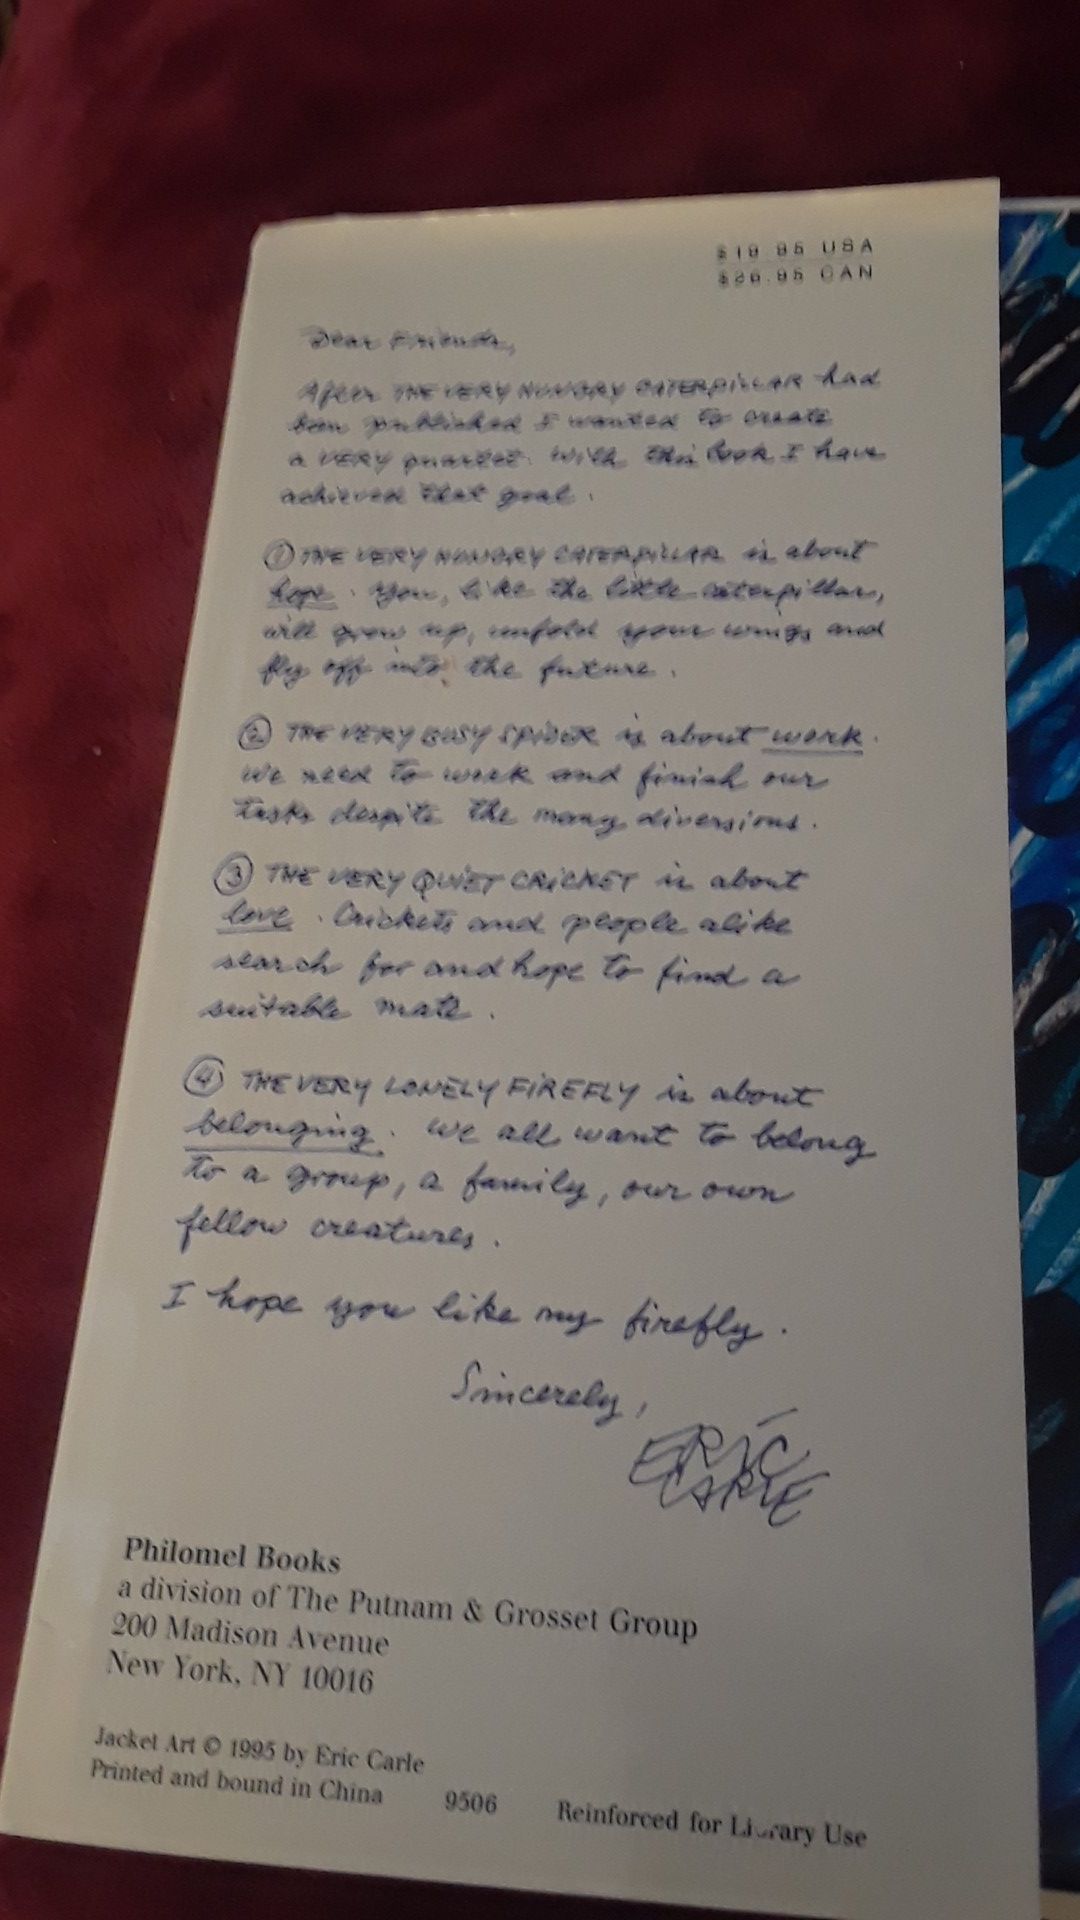 $19.95 USA
$26.95 CAN
Dear Friends,
After THE VERY HUNGRY CATERPILLAR had
been published I wanted to create
a VERY quartet. With this book I have
achieved that goal.
① THE VERY HUNGRY CATERPILLAR is about
hope. You, like the little caterpillar,
will grow up, unfold your wings and
fly off into the future.
② THE VERY BUSY SPIDER is about work.
We need to work and finish our
tasks despite the many diversions.
③ THE VERY QUIET CRICKET is about
love. Crickets and people alike
search for and hope to find a
suitable mate.
④ THE VERY LONELY FIREFLY is about
belonging. We all want to belong
to a group, a family, our own
fellow creatures.
I hope you like my firefly.
Sincerely,
ERIC
CARLE
Philomel Books
a division of The Putnam & Grosset Group
200 Madison Avenue
New York, NY 10016
Jacket Art © 1995 by Eric Carle
Printed and bound in China 9506 Reinforced for Library Use